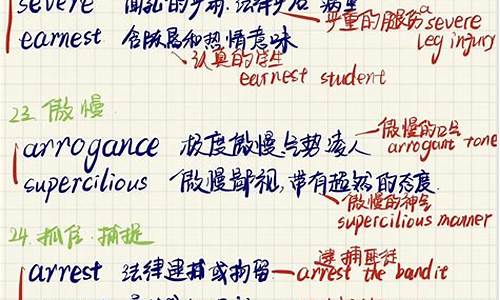 severe
严重的腿伤 a severe
leg injury
earnest 含 和热情意味
认真的学生
earnest student
23. 傲慢
arrogance 极度傲慢,气势凌人
傲慢的口气
arrogant tone
supercilious 傲慢鄙视,带有超然的态度.
傲慢的神气
supercilious manner
24. 抓住.捕捉
arrest 法律逮捕或拘留
逮捕匪徒
arrest the bandit